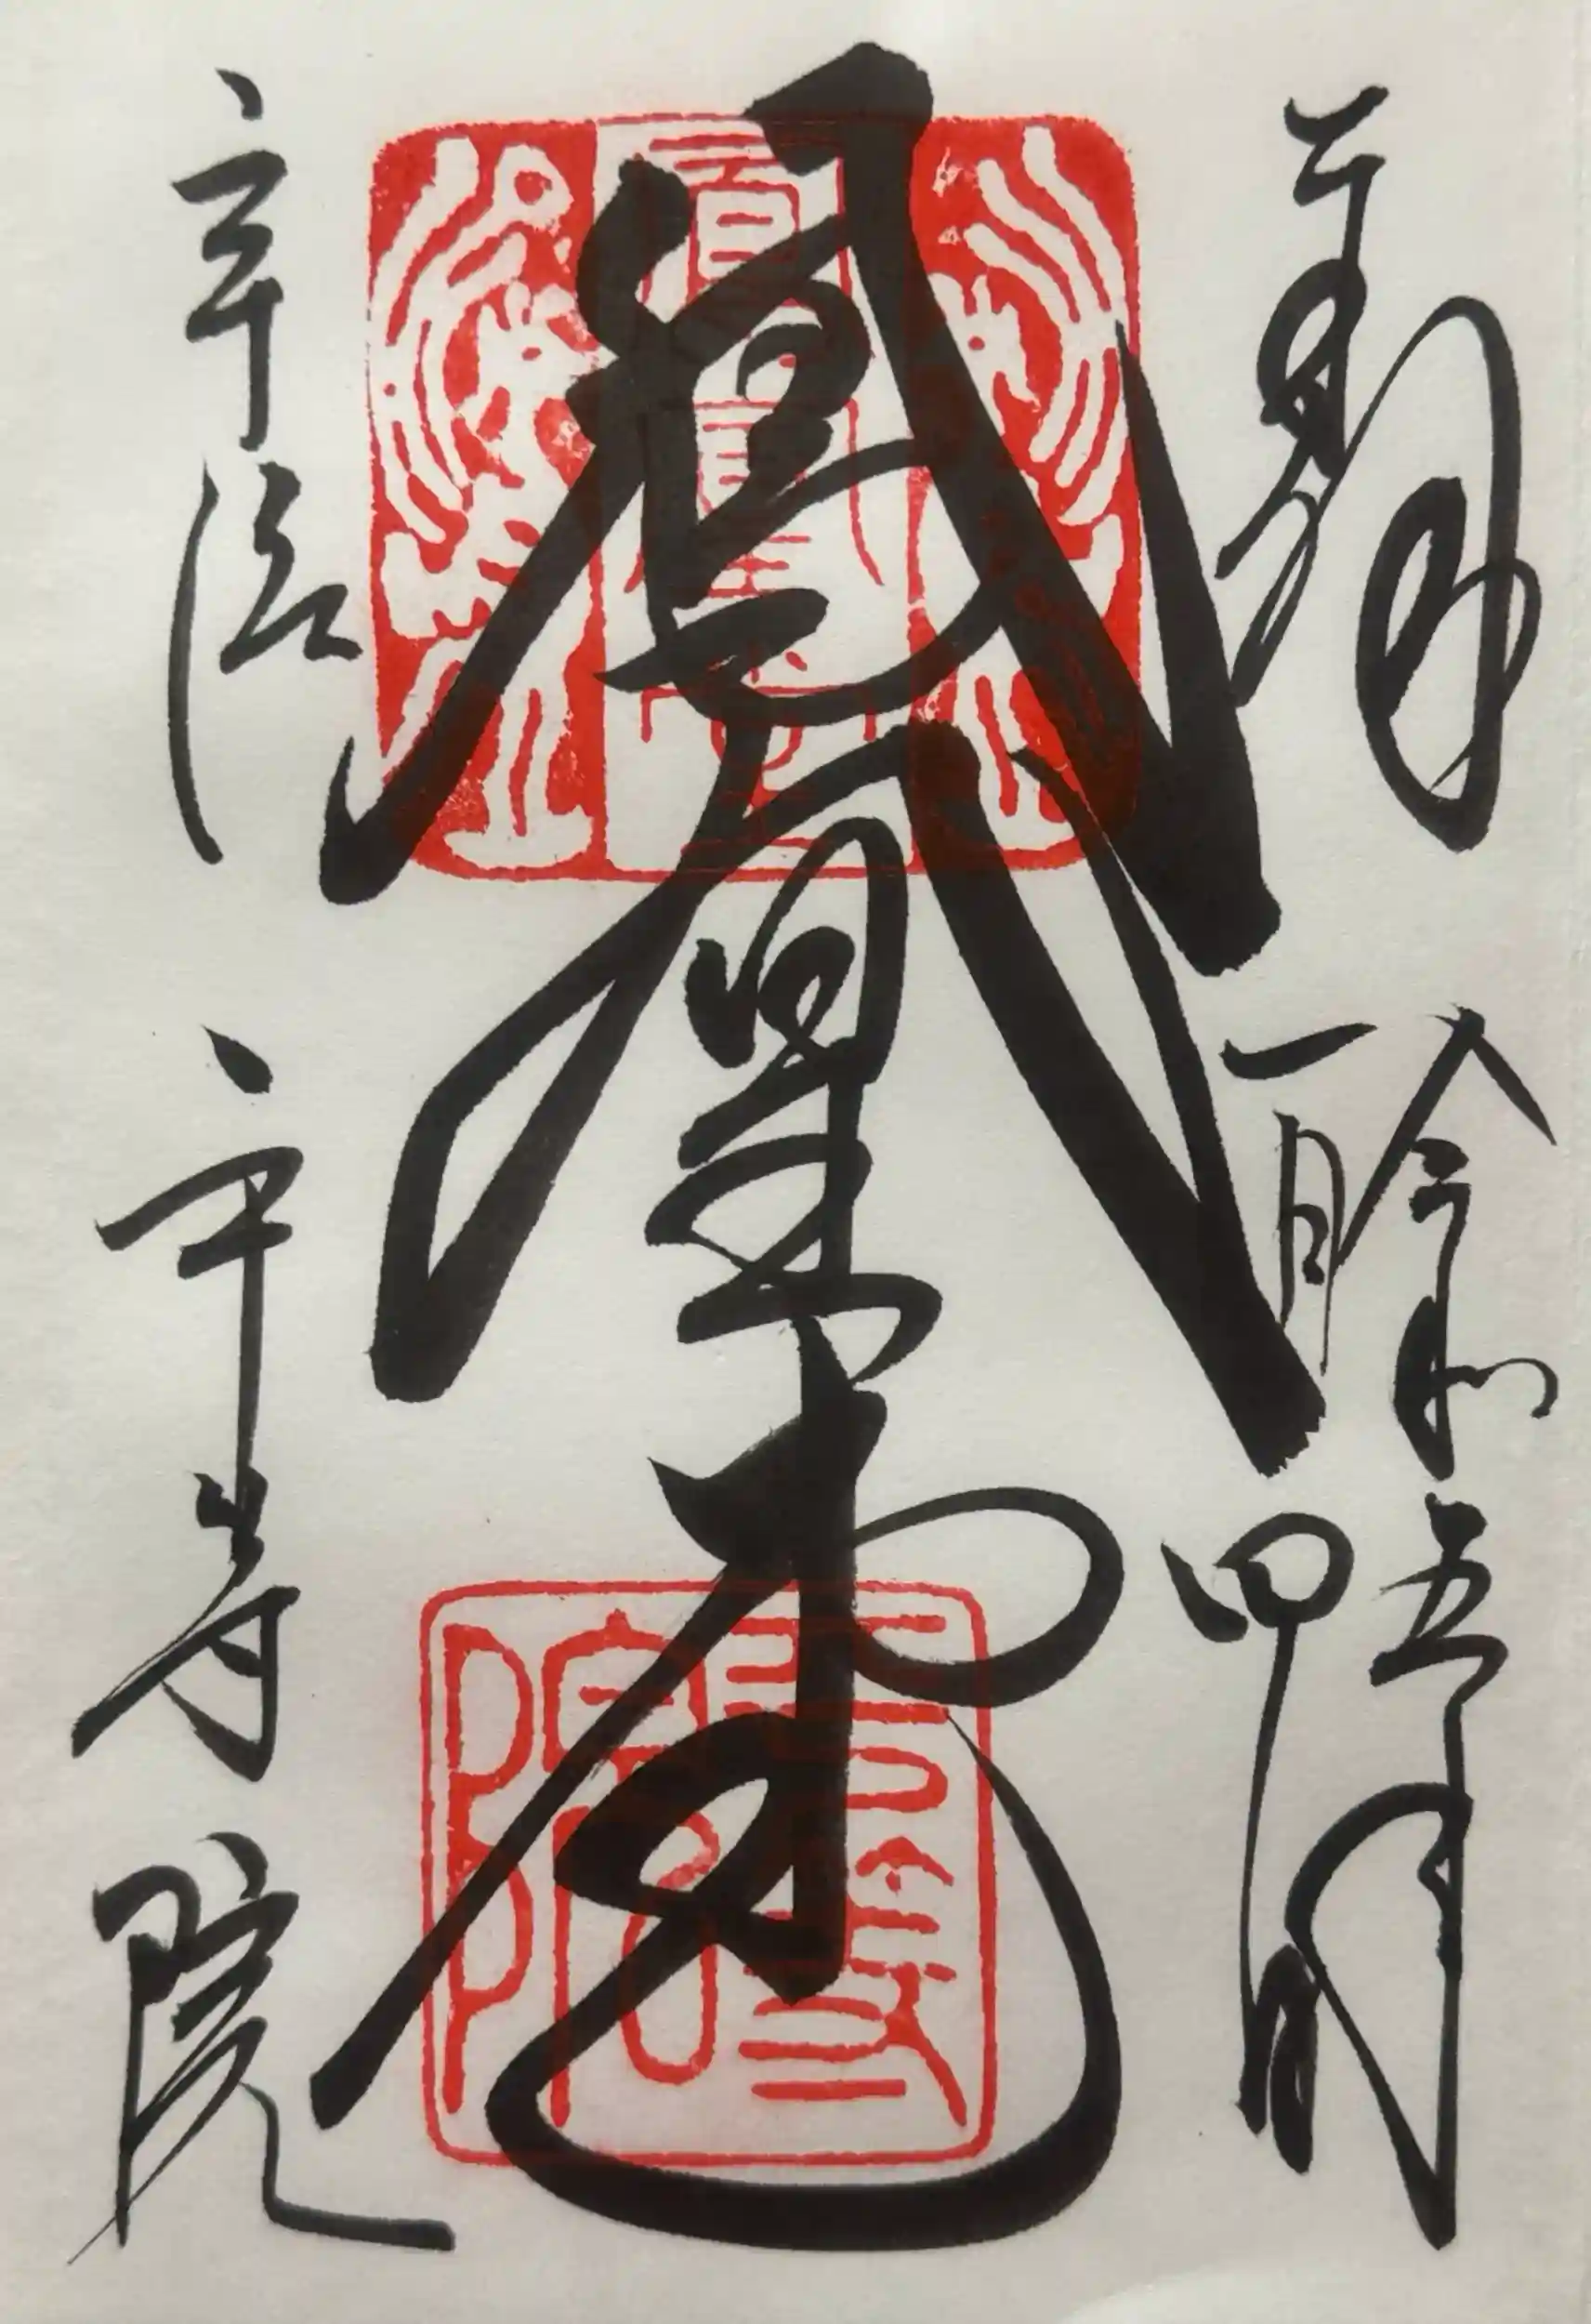 奉拝
令和五年
一月四日
鳳凰堂
宇治
平等院